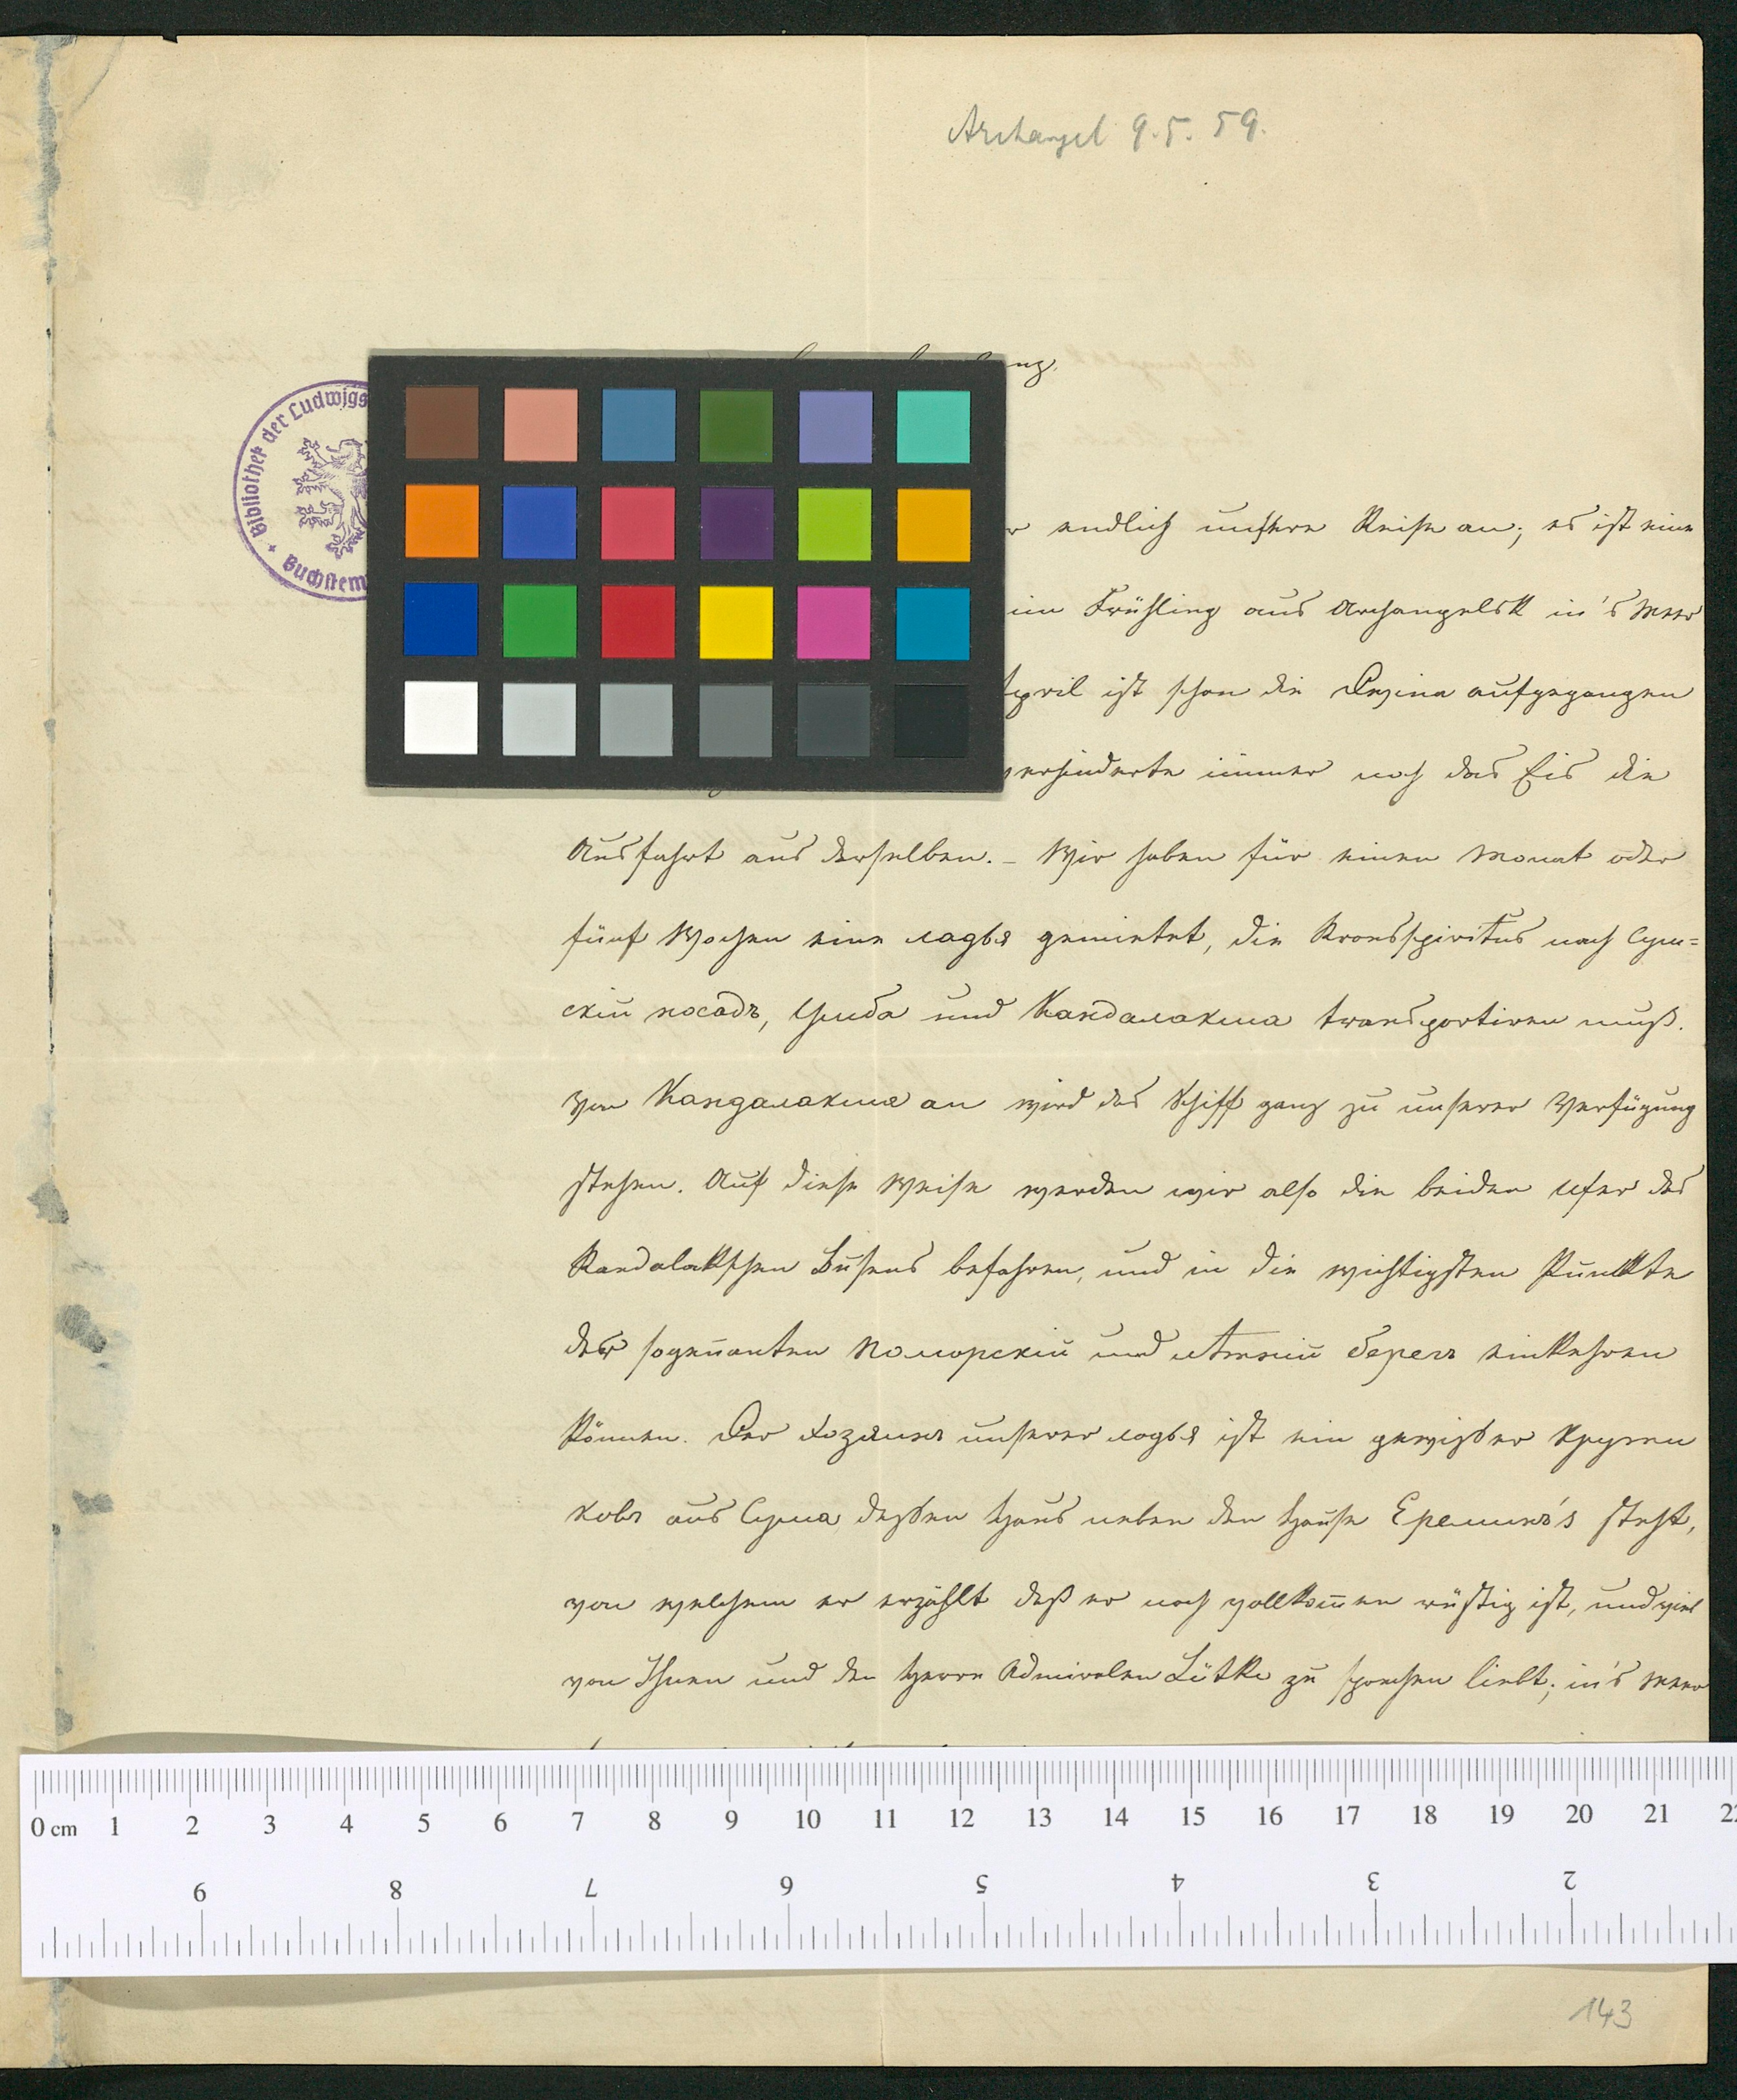 Archangel 9.5.59.
Bibliothek der Ludwigs
Buchstem
endlich unsere Reise an; es ist eine
im Frühling aus Archangelsk in's Meer
April ist schon die Dwina aufgegangen
verhinderte immer noch das Eis die
Ausfahrt aus derselben. – Wir haben für einen Monat oder
fünf Wochen eine ладья gemietet, die Kronsspiritus nach Сум=
скій посадъ, Умба und Кандалакша transportiren muß.
Von Кандалакша an wird das Schiff ganz zu unserer Verfügung
stehen. Auf diese Weise werden wir also die beiden Ufer des
Kandalakschen Busens befahren, und in die wichtigsten Punkte
der sogenanten Поморскій und лѣтній берегъ einkehren
können. Der Хозяинъ unserer ладья ist ein gewißer
ковъ aus Сума, deßen Haus neben den Hause Ереминъ's steht,
von welchem er erzählt daß er noch vollkom̄en rüstig ist, und viel
von Ihnen und den Herrn Admiralen Lütke zu sprechen liebt; in's Meer
0 cm 1 2 3 4 5 6 7 8 9 10 11 12 13 14 15 16 17 18 19 20 21 22
9 8 7 6 5 4 3 2
143